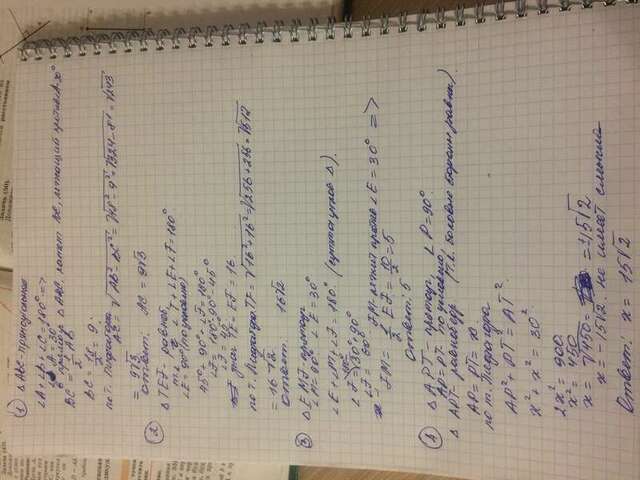 1) Δ ABC - прямоугольный
∠A+∠B+∠C=180° =>
∠A=30°
В прямоуг Δ ABC, катет BC, лежащий против ∠A=30°
BC = 1/2 AB
BC = 18/2 = 9.
по т. Пифагора
AC = √AB² - BC² = √18² - 9² = √324 - 81 = √243
= 9√3
Ответ: AC = 9√3
2
Δ TEF - равноб,
т.к. ∠T+∠E+∠F=180°
∠E = 90° (по условию)
45° + 90° + ∠F = 180°
∠F = 180° - 90° - 45°
∠F = 45°
знач TE = EF = 16
по т. Пифагора TF = √16² + 16² = √256 + 256 = √512
= 16√2
Ответ: 16√2
3 Δ EMF - прямоуг
∠M = 90° ∠E = 30°
∠E + ∠M + ∠F = 180° (сумма углов Δ).
∠F = 30° + 90°
∠F = 60°
FM - лежит против ∠E = 30° =>
FM = 1/2 EF = 10/2 = 5
Ответ: 5
4 Δ APT - прямоуг, ∠P = 90°.
AP = PT. по условию,
Δ APT - равнобедр (т.к. боковые стороны равны).
AP = PT = x.
по т. Пифагора
AP² + PT² = AT².
x² + x² = 30²
2x² = 900.
x² = 450
x = √450 = = ±15√2
x = -15√2. не имеет смысла
Ответ: x = 15√2